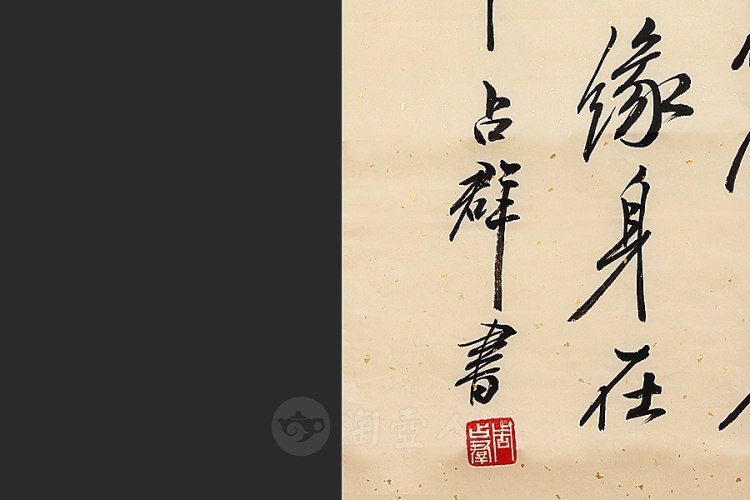 缘身在
占群書
周占羣
陶壶人